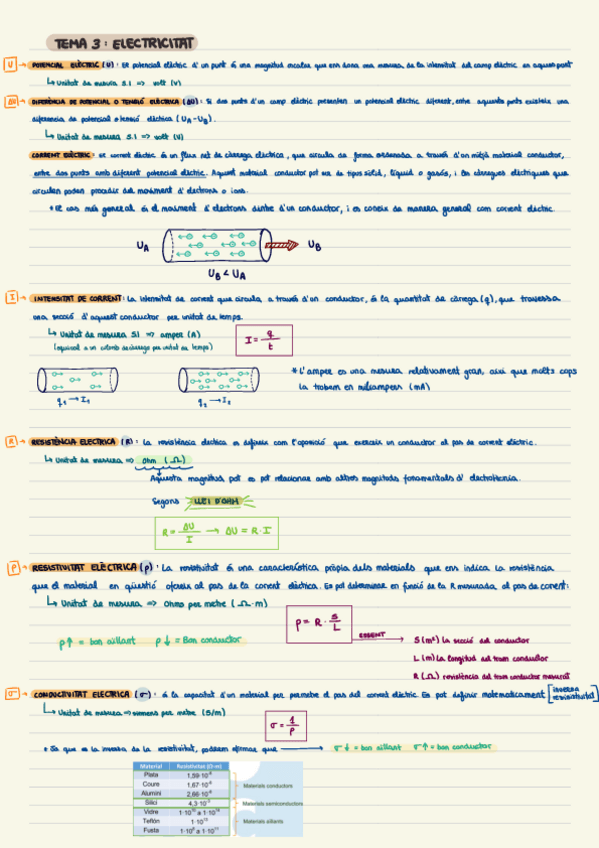 TEMA 3: ELECTRICITAT
U → POTENCIAL ELÈCTRIC (U): El potencial elèctric d'un punt és una magnitud escalar que ens dona una mesura de la intensitat del camp elèctric en aquest punt
↳ Unitat de mesura S.I => volt (V)
ΔU → DIFERÈNCIA DE POTENCIAL O TENSIÓ ELÈCTRICA (ΔU): Si dos punts d'un camp elèctric presenten un potencial elèctric diferent, entre aquests punts existeix una
diferència de potencial o tensió elèctrica (UA-UB).
↳ Unitat de mesura S.I => volt (V)
CORRENT ELÈCTRIC: El corrent elèctric és un flux net de càrrega elèctrica, que circula de forma ordenada a través d'un mitjà material conductor,
entre dos punts amb diferent potencial elèctric. Aquest material conductor pot ser de tipus sòlid, líquid o gasós, i les càrregues elèctriques que
circulen poden procedir del moviment d'electrons o ions.
* El cas més general és el moviment d'electrons dintre d'un conductor, i es coneix de manera general com corrent elèctric.
UA UB
UB < UA
I → INTENSITAT DE CORRENT: La intensitat de corrent que circula a través d'un conductor, és la quantitat de càrrega (q), que travessa
una secció d'aquest conductor per unitat de temps.
↳ Unitat de mesura S.I => amper (A)
(equival a un culomb de càrrega per unitat de temps)
I = q / t
q1 → I1 q2 → I2
* L'amper es una mesura relativament gran, així que molts cops
la trobem en mil·liampers (mA)
R → RESISTÈNCIA ELECTRICA (R): La resistència elèctrica es defineix com l'oposició que exerceix un conductor al pas de corrent elèctric.
↳ Unitat de mesura => Ohm (Ω)
Aquesta magnitud pot es pot relacionar amb altres magnituds fonamentals d'electrotècnia.
Segons LLEI D'OHM
R = ΔU / I → ΔU = R · I
ρ → RESISTIVITAT ELÈCTRICA (ρ): La resistivitat és una característica pròpia dels materials que ens indica la resistència
que el material en qüestió ofereix al pas de la corrent elèctrica. Es pot determinar en funció de la R mesurada al pas de corrent:
↳ Unitat de mesura => Ohms per metre (Ω·m)
ρ↑ = bon aïllant ρ↓ = Bon conductor
ρ = R · S / L
ESSENT → S (m²) la secció del conductor
L (m) la longitud del tram conductor
R (Ω) resistència del tram conductor mesurat
σ → CONDUCTIVITAT ELECTRICA (σ): és la capacitat d'un material per permetre el pas del corrent elèctric. Es pot definir matemàticament [inversa resistivitat]
↳ Unitat de mesura => siemens per metre (S/m)
σ = 1 / ρ
* Ja que es la inversa de la resistivitat, podrem afirmar que → σ↓ = bon aïllant σ↑ = bon conductor
Material Resistivitat (Ω·m)
Plata 1,59·10⁻⁸
Coure 1,67·10⁻⁸
Alumini 2,66·10⁻⁸
Materials conductors
Silici 4,3·10⁻³
Materials semiconductors
Vidre 1·10¹⁰ a 1·10¹⁴
Teflón 1·10¹³
Fusta 1·10⁸ a 1·10¹¹
Materials aïllants